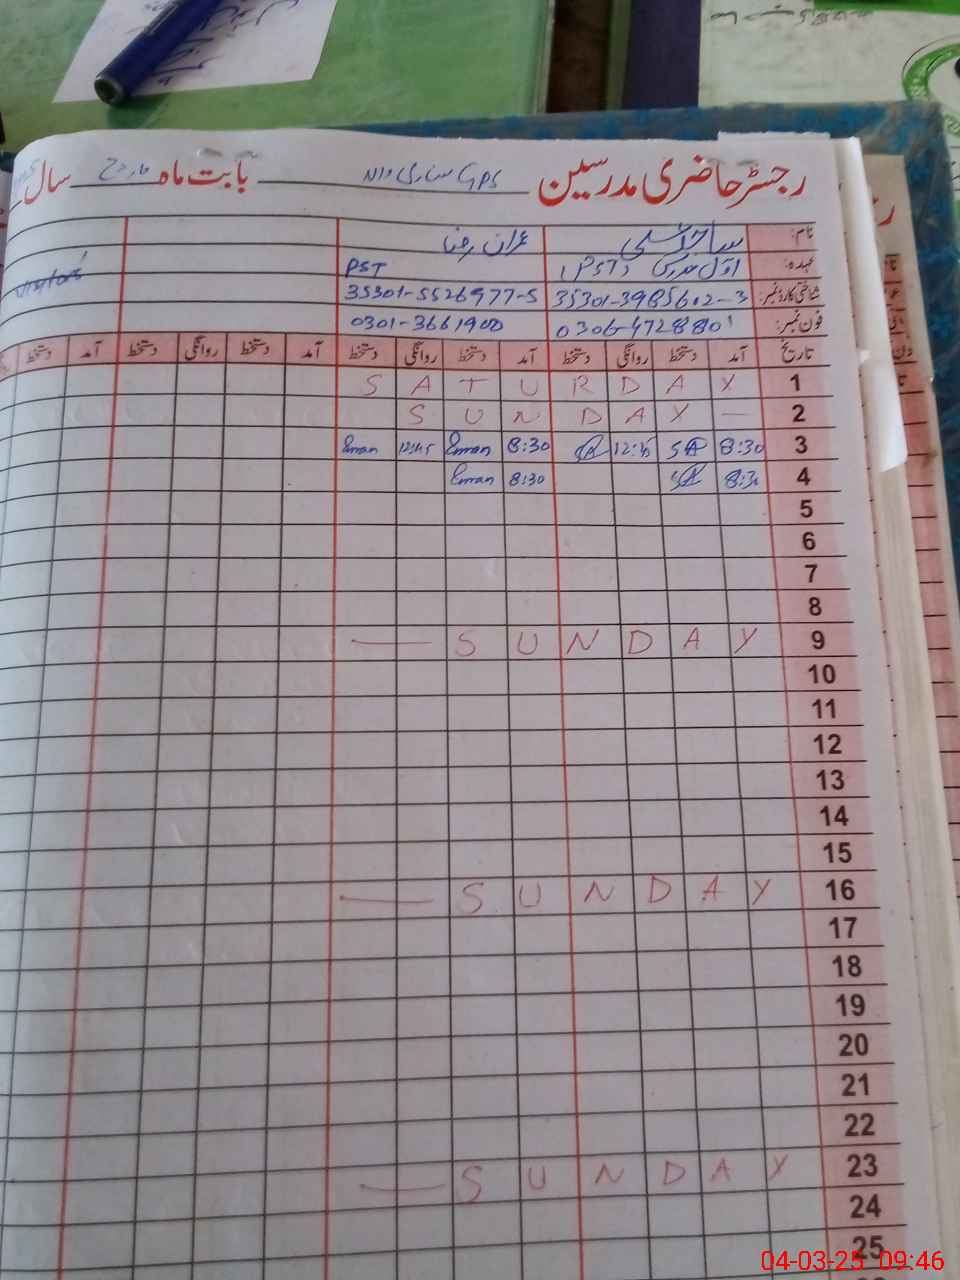 رجسٹر حاضری مدرسین GPS بابت ماہ مارچ سال
نام: ساجد علی عمران رضا
عہدہ: اول مدرس PST
شناختی کارڈ نمبر: 35301-3985602-3 35301-5526977-5 Visitors'
فون نمبر: 0306-4728801 0301-3661900
تاریخ آمد دستخط روانگی دستخط آمد دستخط روانگی دستخط آمد دستخط روانگی دستخط آمد دستخط
1 SATURDAY
2 SUNDAY —
3 8:30 SA 12:45 SA 8:30 Eman 12:45 Eman
4 8:30 SA 8:30 Eman
5
6
7
8
9 — SUNDAY
10
11
12
13
14
15
16 — SUNDAY
17
18
19
20
21
22
23 — SUNDAY
24
25
04-03-25 09:46